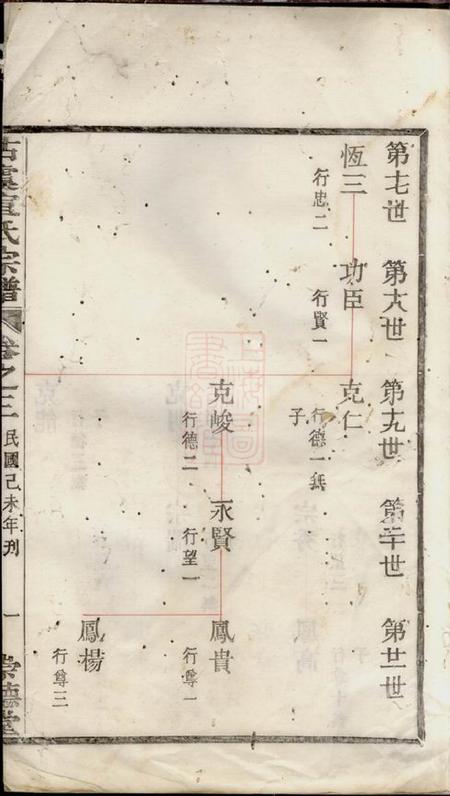 第十七世
第十八世
第十九世
第二十世
第廿一世
恆三
行忠二
功臣
行賢一
克仁
行德一無
子
克峻
行德二
永賢
行望一
鳳貴
行尊一
鳳楊
行尊三
氏宗譜
卷之三
民國己未年刊
一
崇德堂
上海圖
書館藏